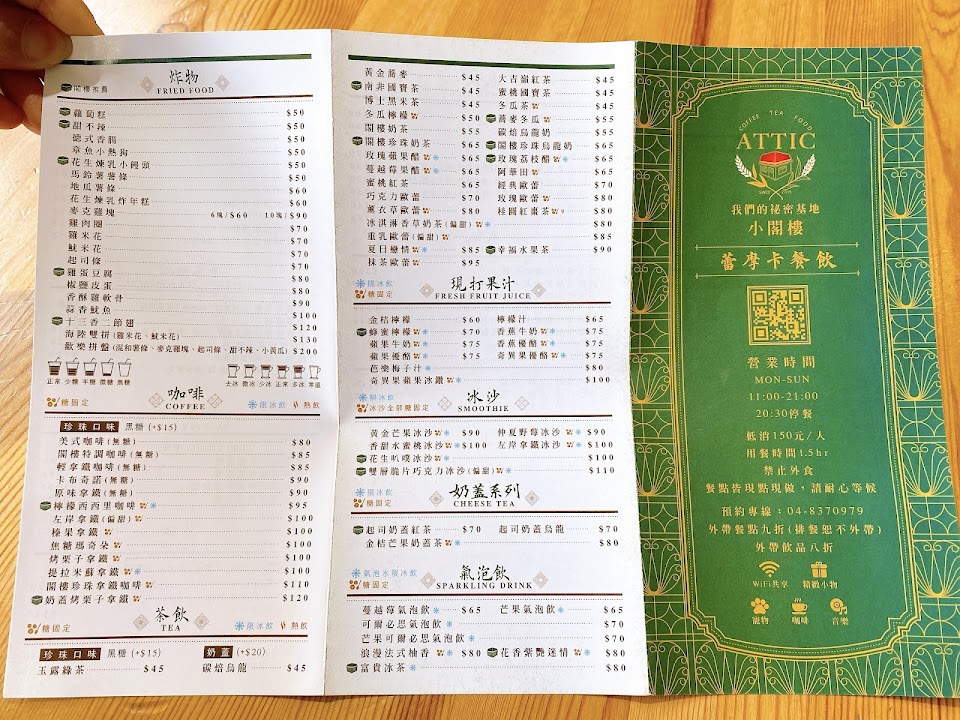 炸物
FRIED FOOD
閣樓推薦
蘿蔔糕 $50
甜不辣 $50
德式香腸 $50
章魚小熱狗 $50
花生煉乳小饅頭 $50
馬鈴薯薯條 $50
地瓜薯條 $60
花生煉乳炸年糕 $60
麥克雞塊 6塊/$60 10塊/$90
雞肉圈 $70
雞米花 $70
魷米花 $70
起司條 $70
雞蛋豆腐 $80
椒鹽皮蛋 $80
香酥雞軟骨 $90
蒜香魷魚 $100
十三香二節翅 $120
海陸雙拼(雞米花、魷米花) $130
歡樂拼盤(混和薯條、麥克雞塊、起司條、甜不辣、小黃瓜) $200
正常 少糖 半糖 微糖 無糖
去冰 微冰 少冰 正常 多冰 常溫
咖啡
COFFEE
糖固定
限冰飲 熱飲
珍珠口味 黑糖 (+$15)
美式咖啡(無糖) $80
閣樓特調咖啡(無糖) $85
輕拿鐵咖啡(無糖) $85
卡布奇諾(無糖) $90
原味拿鐵(無糖) $90
檸檬西西里咖啡 $95
左岸拿鐵(偏甜) $100
榛果拿鐵 $100
焦糖瑪奇朵 $100
烤栗子拿鐵 $100
提拉米蘇拿鐵 $100
閣樓珍珠拿鐵咖啡 $110
奶蓋烤栗子拿鐵 $120
茶飲
TEA
糖固定
限冰飲 熱飲
珍珠口味 黑糖 (+$15) 奶蓋 (+$20)
玉露綠茶 $45 碳焙烏龍 $45
黃金蕎麥 $45 大吉嶺紅茶 $45
南非國寶茶 $45 蜜桃國寶茶 $45
博士黑米茶 $45 冬瓜茶 $45
冬瓜檸檬 $50 蕎麥冬瓜 $55
閣樓奶茶 $55 碳焙烏龍奶 $55
閣樓珍珠奶茶 $65 閣樓珍珠烏龍奶 $65
玫瑰蘋果醋 $65 玫瑰荔枝醋 $65
蔓越莓果醋 $65 阿華田 $65
蜜桃紅茶 $65 經典歐蕾 $70
巧克力歐蕾 $70 玫瑰歐蕾 $80
薰衣草歐蕾 $80 桂圓紅棗茶 $80
冰淇淋香草奶茶(偏甜) $80
重乳歐蕾(偏甜) $80
夏日戀情 $85 幸福水果茶 $90
抹茶歐蕾 $95
現打果汁
FRESH FRUIT JUICE
限冰飲
糖固定
金桔檸檬 $60 檸檬汁 $65
蜂蜜檸檬 $70 香蕉牛奶 $75
蘋果牛奶 $75 香蕉優酪 $75
蘋果優酪 $75 奇異果優酪 $75
芭樂梅子汁 $80
奇異果蘋果冰鑽 $100
冰沙
SMOOTHIE
限冰飲
冰沙全部糖固定
黃金芒果冰沙 $90 仲夏野莓冰沙 $90
香甜水蜜桃冰沙 $100 左岸拿鐵冰沙 $100
花生叭噗冰沙 $100
雙層脆片巧克力冰沙(偏甜) $110
奶蓋系列
CHEESE TEA
限冰飲
糖固定
起司奶蓋紅茶 $70 起司奶蓋烏龍 $70
金桔芒果奶蓋茶 $80
氣泡飲
SPARKLING DRINK
氣泡水限冰飲
糖固定
蔓越莓氣泡飲 $65 芒果氣泡飲 $65
可爾必思氣泡飲 $70
芒果可爾必思氣泡飲 $70
浪漫法式柚香 $80 花香紫艷迷情 $80
富貴冰茶 $80
COFFEE TEA FOOD
ATTIC
我們的祕密基地
小閣樓
蕾摩卡餐飲
營業時間
MON-SUN
11:00-21:00
20:30停餐
低消150元/人
用餐時間1.5hr
禁止外食
餐點皆現點現做，請耐心等候
預約專線：04-8370979
外帶餐點九折(排餐恕不外帶)
外帶飲品八折
WiFi共享 精緻小物
寵物 咖啡 音樂